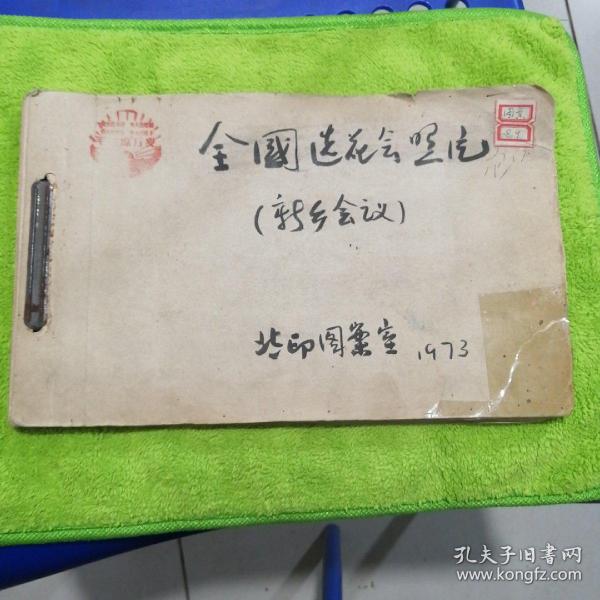 全國选花会照片
(新乡会议)
北印图案室 1973
孔夫子旧书网
www.kongfz.com